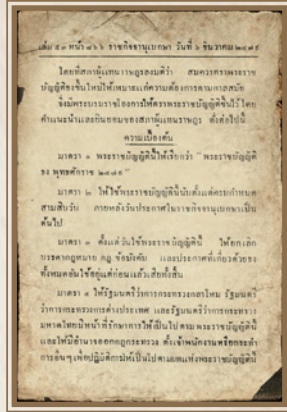 เล่ม ๕๓ หน้า ๘๖๖ ราชกิจจานุเบกษา วันที่ ๖ ธันวาคม ๒๔๗๙
โดยที่สภาผู้แทนราษฎรลงมติว่า สมควรตราพระราช
บัญญัติธงขึ้นใหม่ให้เหมาะแก่ความต้องการตามกาลสมัย
จึ่งมีพระบรมราชโองการให้ตราพระราชบัญญัติขึ้นไว้โดย
คำแนะนำและยินยอมของสภาผู้แทนราษฎร ดั่งต่อไปนี้
ความเบื้องต้น
มาตรา ๑ พระราชบัญญัตินี้ให้เรียกว่า “พระราชบัญญัติ
ธง พุทธศักราช ๒๔๗๙”
มาตรา ๒ ให้ใช้พระราชบัญญัตินี้นับตั้งแต่ครบกำหนด
สามสิบวัน ภายหลังวันประกาศในราชกิจจานุเบกษาเป็น
ต้นไป
มาตรา ๓ ตั้งแต่วันใช้พระราชบัญญัตินี้ ให้ยกเลิก
บรรดากฎหมาย กฎ ข้อบังคับ และประกาศที่เกี่ยวด้วยธง
ทั้งหมดอันใช้อยู่แต่ก่อนแล้วเสียทั้งสิ้น
มาตรา ๔ ให้รัฐมนตรีว่าการกระทรวงกลาโหม รัฐมนตรี
ว่าการกระทรวงการต่างประเทศ และรัฐมนตรีว่าการกระทรวง
มหาดไทยมีหน้าที่รักษาการให้เป็นไปตามพระราชบัญญัตินี้
และให้มีอำนาจออกกฎกระทรวง ตั้งเจ้าพนักงานหรือกระทำ
การอื่นๆ เพื่อปฏิบัติการให้เป็นไปตามบทแห่งพระราชบัญญัตินี้